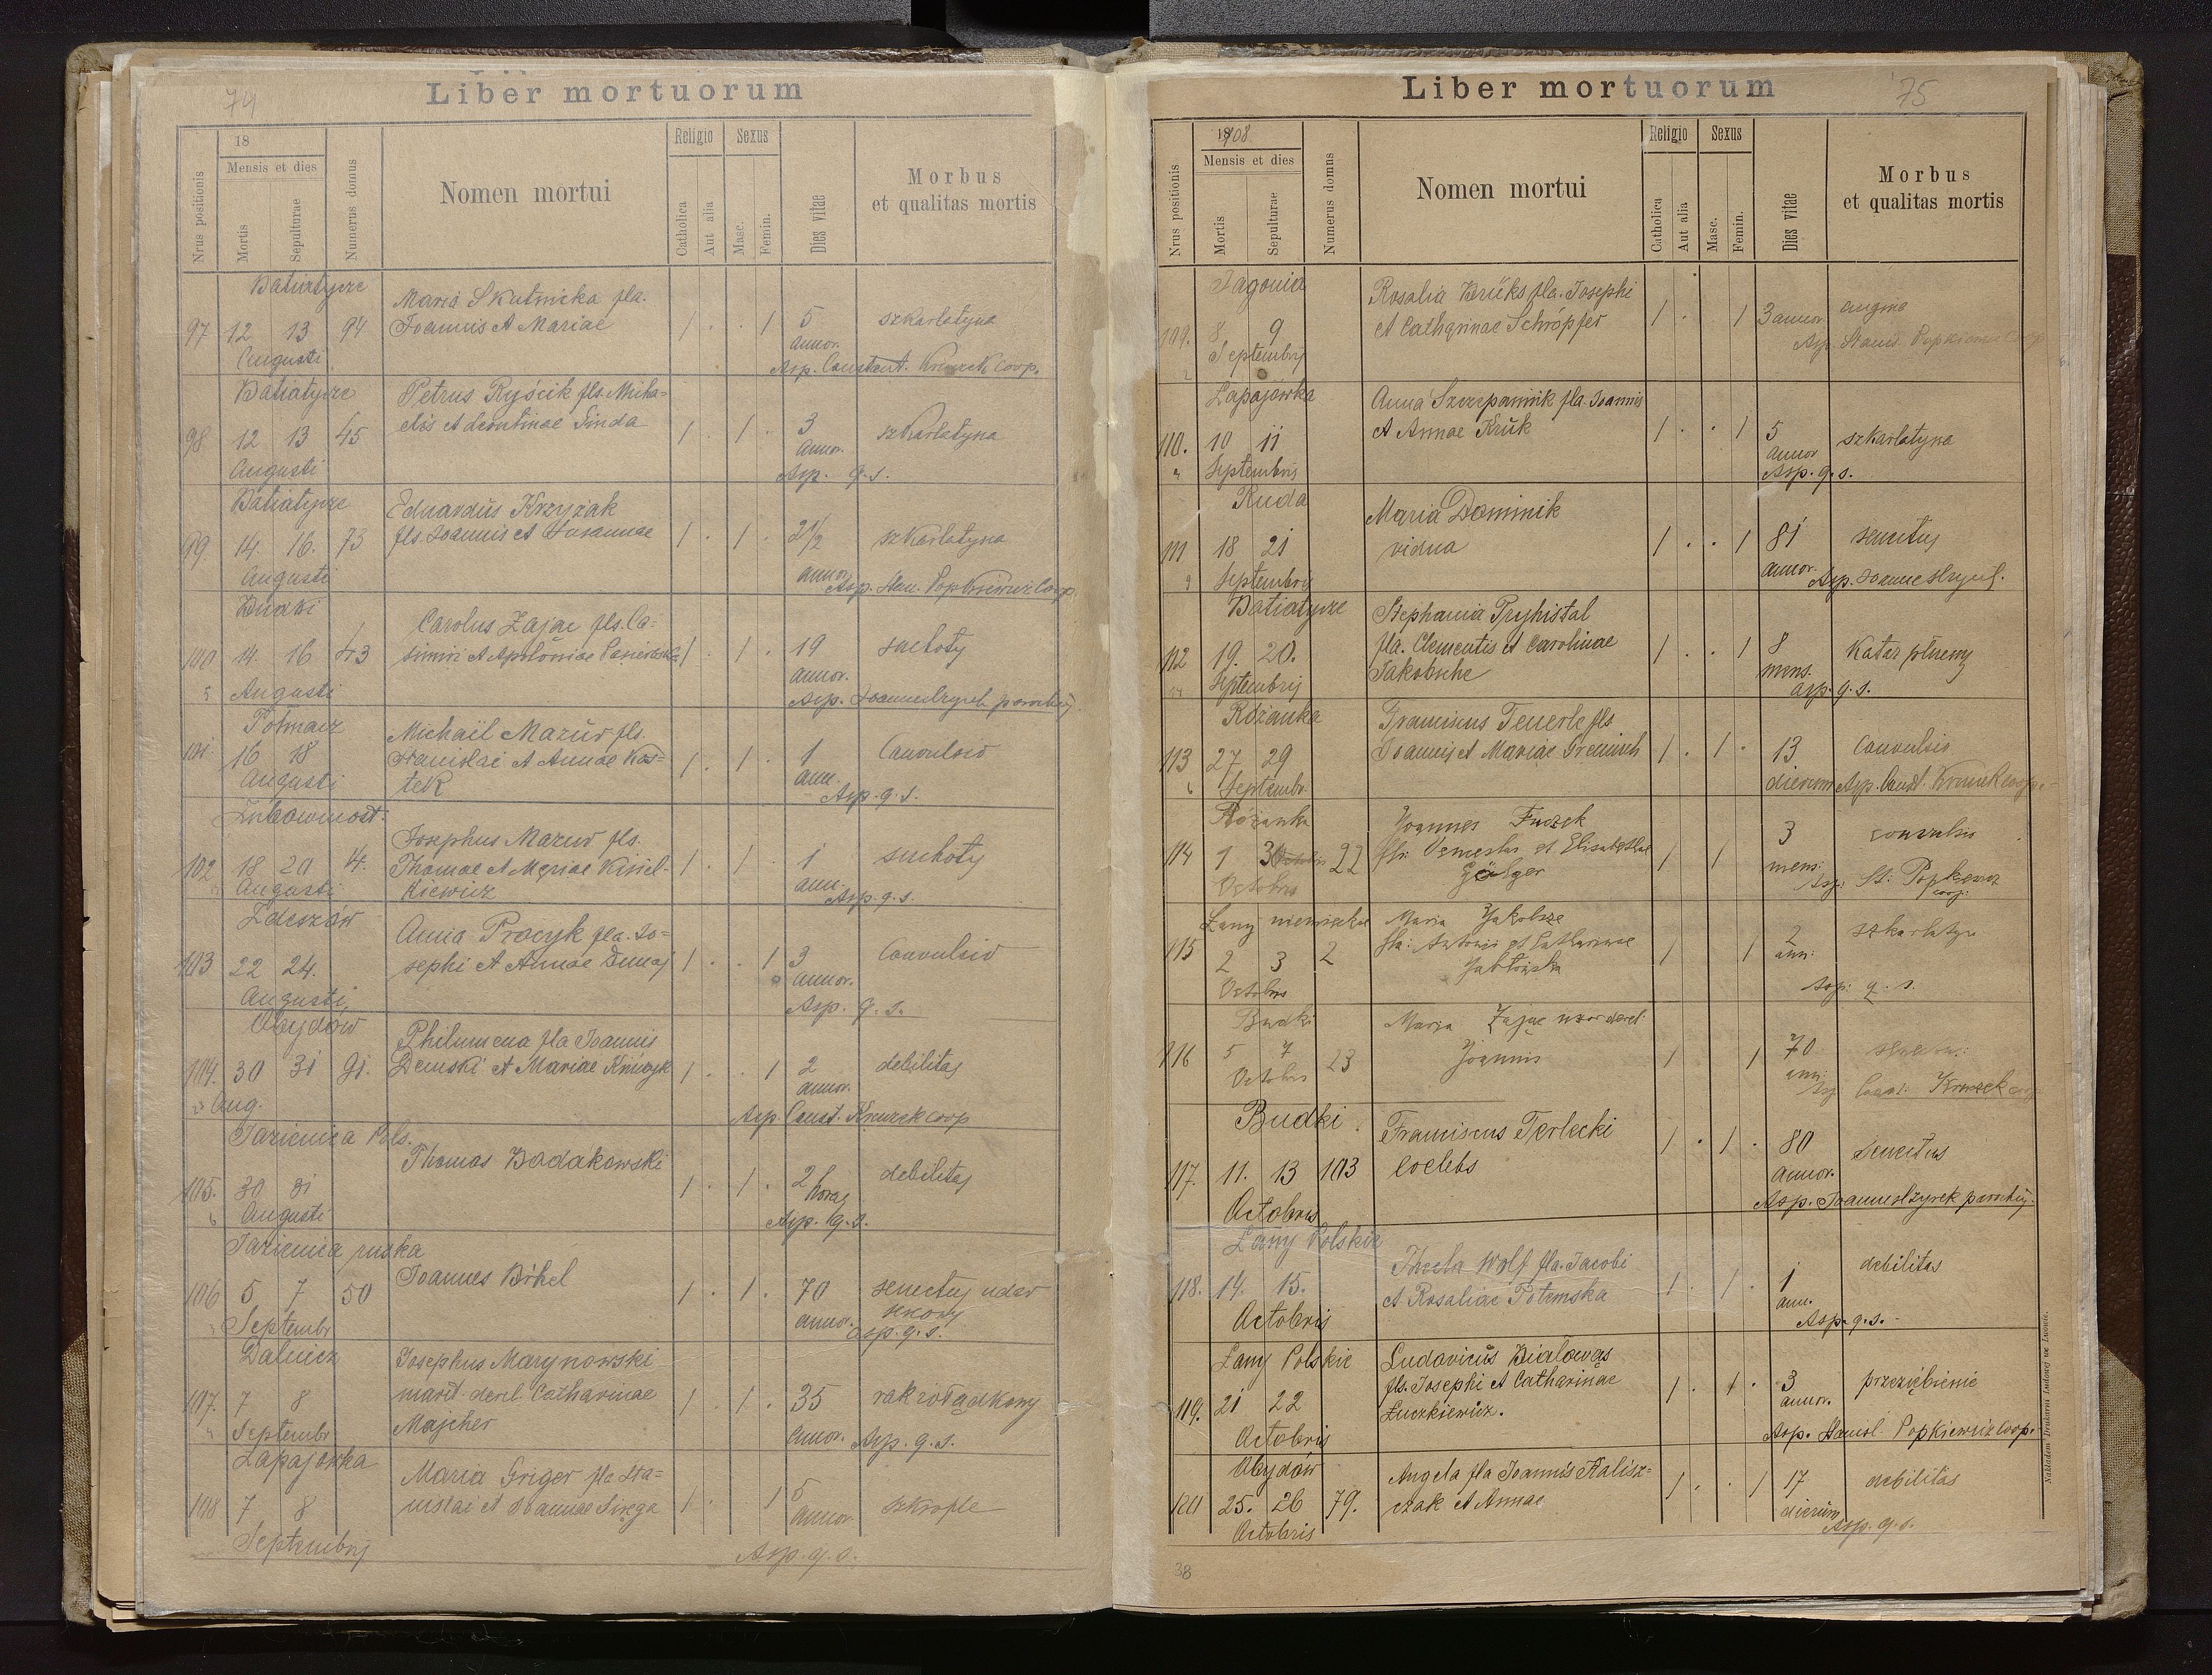 74
Liber mortuorum
Nrus positionis
18
Mensis et dies
Mortis
Sepulturae
Numerus domus
Nomen mortui
Religio
Catholica
Aut alia
Sexus
Masc.
Femin.
Dies vitae
Morbus
et qualitas mortis
Batiatycze
Maria Skutnicka fla.
97 12 13 94 Joannis et Mariae 1 . . 1 5 szkarlatyna
Augusti annor.
Asp. Constant. Kruczek coop.
Batiatycze Petrus Ryścik fls. Micha=
98 12 13 45 elis et Leontinae Sinda 1 . 1 . 3 szkarlatyna
Augusti annor.
Asp. q. s.
Batiatycze Eduardus Krzyżak
99. 14. 16. 73 fls. Joannis et Susannae 1 . 1 . 2 1/2 szkarlatyna
Augusti annor.
Asp. Stan. Popkiewicz Coop.
Budki Carolus Zając fls. Ca=
100 14. 16 43 simiri et Apoloniae 1 . 1 . 19 suchoty
5 Augusti annor.
Asp. Joannes parochus
Michaël Mazur fls.
101. 16 18 Stanislai et Annae Kos= 1 . 1 . 1 Convulsio
Augusti tek ann.
Asp. q. s.
Żubowmost. Josephus Mazur fls.
102 18 20 4. Thomae et Mariae Kisiel- 1 . 1 . 1 suchoty
Augusti kiewicz ann.
Asp. q. s.
Zdeszów Anna Procyk fla. Jo=
103 22 24. sephi et Annae Dumaj 1 . . 1 3 Convulsio
Augusti. annor.
Asp. q. s.
Obydów Philumena fla Joannis
104. 30 31 91. Demski et Mariae 1 . . 1 2 debilitas
Aug. annor.
Asp. Const. Kruczek coop
Jazienica Pols. Thomas Badakowski
105. 30 31 1 . 1 . 2 debilitas
6 Augusti horas
Asp. q. s.
Jazienica ruska
106 5 7 50 Joannes Böhel 1 . 1 . 70 senectus udar
Septembr annor.
Asp. q. s.
Dalnicz Josephus Marynowski
107. 7 8 marit. derel. Catharinae 1 . 1 . 35 rak żołądkowy
Septembr Majcher annor. Asp. q. s.
Łapajówka Maria Griger fla Sta=
108 7 8 nislai et Joannae 1 . 1 5 szkrofle
Septembris annor
Asp. q. s.
75
Liber mortuorum
Nrus positionis
1908
Mensis et dies
Mortis
Sepulturae
Numerus domus
Nomen mortui
Religio
Catholica
Aut alia
Sexus
Masc.
Femin.
Dies vitae
Morbus
et qualitas mortis
Jagonia Rosalia Brüks fla. Josephi
109. 8 9 et Catharinae Schröpfer 1 . 1 3 annor angina
Septembris Asp. Stanis. Popkiewicz Coop
Łapajówka Anna Szczepannik fla. Joannis
110. 10 11 et Annae Kruk 1 . . 1 5 szkarlatyna
Septembris annor
Asp. q. s.
Ruda Maria Dominik
111 18 21 vidua 1 . . 1 81 senectus
9 Septembris annor. Asp. Joannes
Batiatycze Stephania Pryhistal
112 19. 20. fla. Clementis et Carolinae 1 . . 1 8 Katar płucny
Septembris Jakobsche mens.
asp. q. s.
Różanka Franciscus Teuerle fls
113 27 29 Joannis et Mariae 1 . 1 . 13 Convulsio
6 Septembr. dierum Asp. Const. Kruczek coop.
Różanka Joannes Fuczek
114 1 3 22 et Elisabethae 1 1 3 convulsio
Octobris Gölger mens:
Asp: St: Popkiewicz
coop:
Łany niemieckie Maria Jakobsze
115 2 3 2 fla: Antonii et Catharinae 1 1 2 szkarlatyn
Octobris Jabłońska ann:
Asp: q. s.
Budki Maria Zając uxor derel.
116 5 7 23 Joannis 1 1 70
Octobris ann:
Asp Const: Kruczek coop
Budki Franciscus Terlecki
117. 11. 13 103 coelebs 1 . 1 . 80 senectus
Octobris annor.
Asp. Joannes parochus.
Łany Polskie Thecla Wolf fla. Jacobi
118. 14. 15. et Rosaliae Potemska 1 . 1 . 1 debilitas
Octobris ann.
Asp. q. s.
Łany Polskie Ludovicus Białowąs
119. 21 22 fls. Josephi et Catharinae 1 . 1 . 3 przeziębienie
Octobris Łuczkiewicz. annor.
Asp. Stanisl. Popkiewicz coop.
Obydów Angela fla Joannis Halisz=
120 25. 26 79. czak et Annae 1 . . 1 17 debilitas
Octobris dierum
Asp. q. s.
Nakładem Drukarni Ludowej we Lwowie.
38